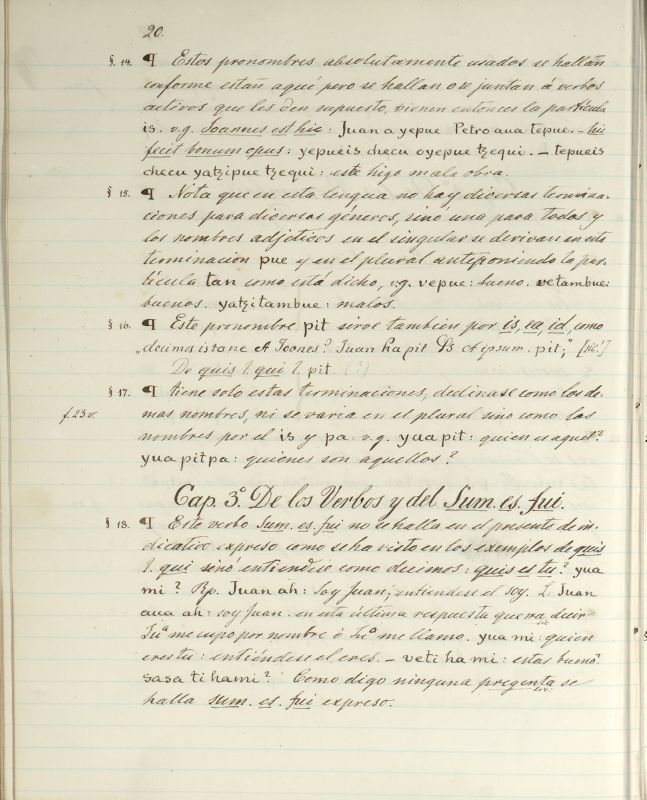 20.
§. 14. ¶ Estos pronombres absolutamente usados se hallan
conforme están aquí pero se hallan o se juntan á verbos
activos que les den supuesto, vienen entónces la partícula
is. v.g. Joannes est hic: Juan a yepue Petro aua tepue. – hic
fecit bonum opus: yepueis checu oyepue tzequi. – tepueis
checu yatzipue tzequi: este hizo mala obra.
§ 15. ¶ Nota que en esta lengua no hay diversas termina-
ciones para diversos géneros, sino una para todos y
los nombres adjetivos en el singular se derivan en esta
terminacion pue y en el plural anteponiendo la par-
tícula tan como está dicho, v.g. vepue: bueno. vetambue:
buenos. yatzitambue: malos.
§ 16. ¶ Este pronombre pit sirve tambien por is, ea, id, como
„decimos istone A Joones? Juan ha pit Rs A ipsum. pit;" [sic!]
De quis l. qui l. pit. (?)
§ 17. ¶ tiene solo estas terminaciones, declinase como los de-
f. 23 v. mas nombres, ni se varia en el plural sino como los
nombres por el is y pa. v.g. yua pit: quien es aquel?
yua pitpa: quienes son aquellos?
Cap. 3.º De los Verbos y del Sum. es. fui.
§ 18. ¶ Este verbo Sum. es. fui no se halla en el presente de in-
dicativo expreso como se ha visto en los exemplos de quis
l. qui sinó entiendese como decimos: quis es tu? yua
mi? Rp. Juan ah: Soy Juan; entiendese el soy. L. Juan
aua ah: soy Juan. en esta última respuesta quera decir
Juª me cupo por nombre ó Juª me llamo. yua mi: quien
eres tu: entiéndese el, eres. – veti ha mi: estas bueno
sasa ti hami? Como digo ninguna pregenta se
sic.
halla sum. es. fui expreso.